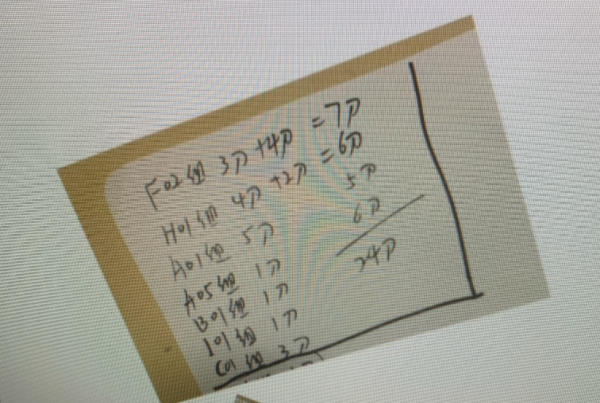 F02组 3P+4P =7P
H01组 4P+2P =6P
A01组 5P 5P
A05组 1P 6P
B01组 1P 24P
I01组 1P
C01组 3P